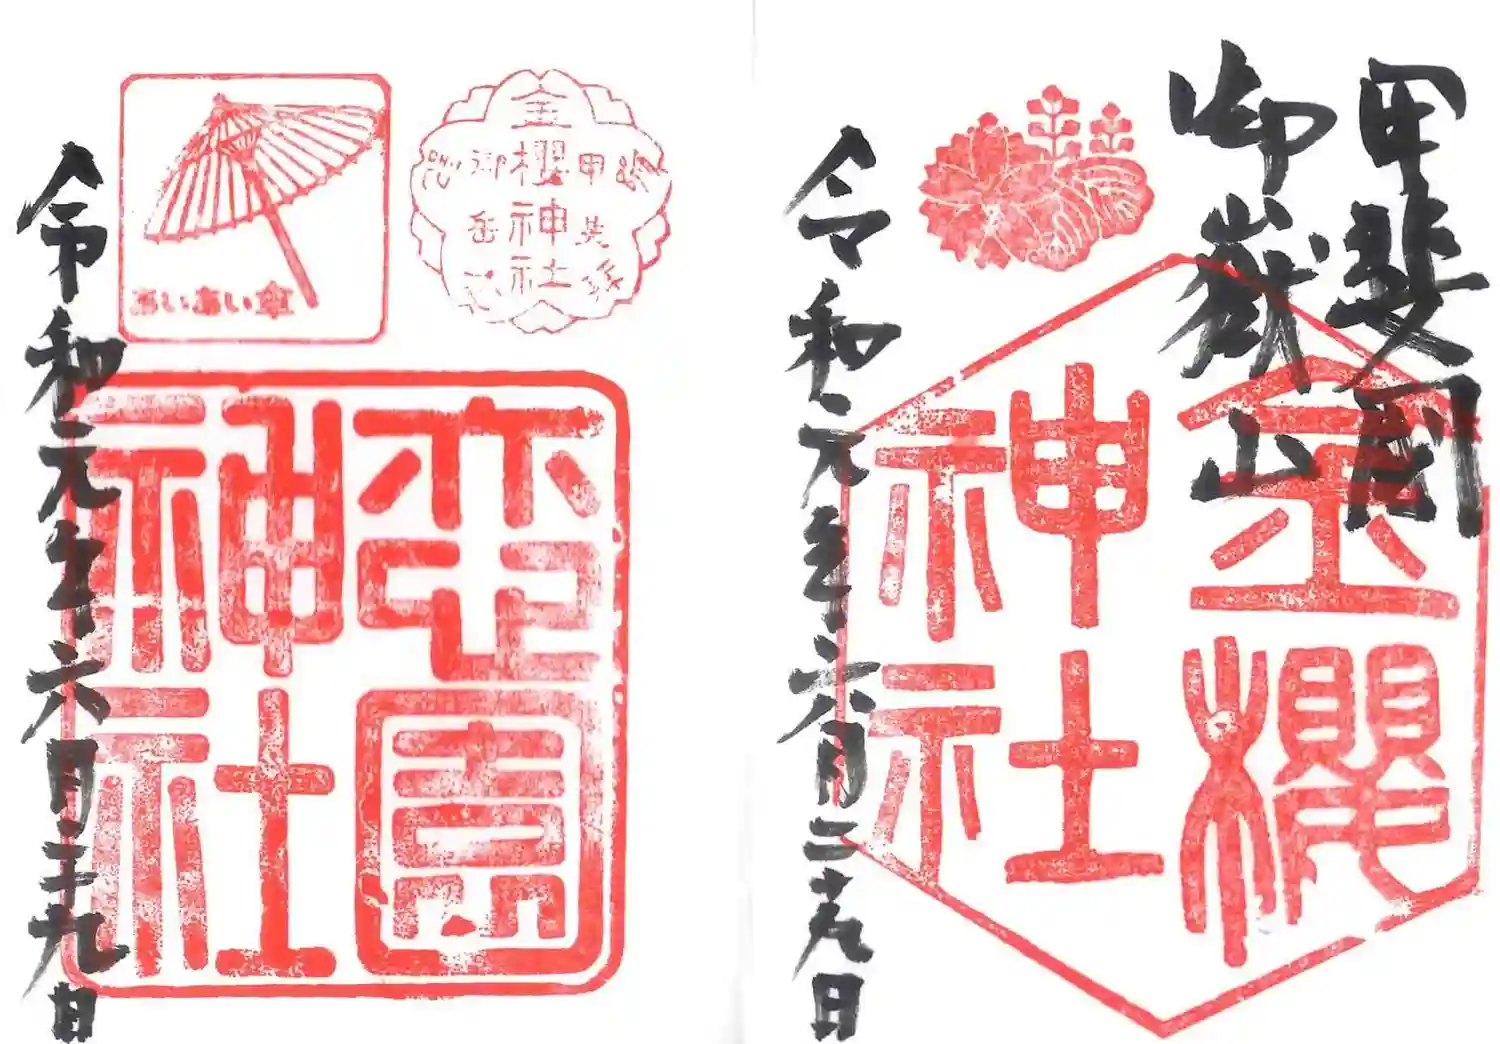 甲斐國
御嶽山
金櫻
神社
令和元年六月二十九日
金櫻神社
御岳
あいあい傘
園
神社
令和元年六月二十九日